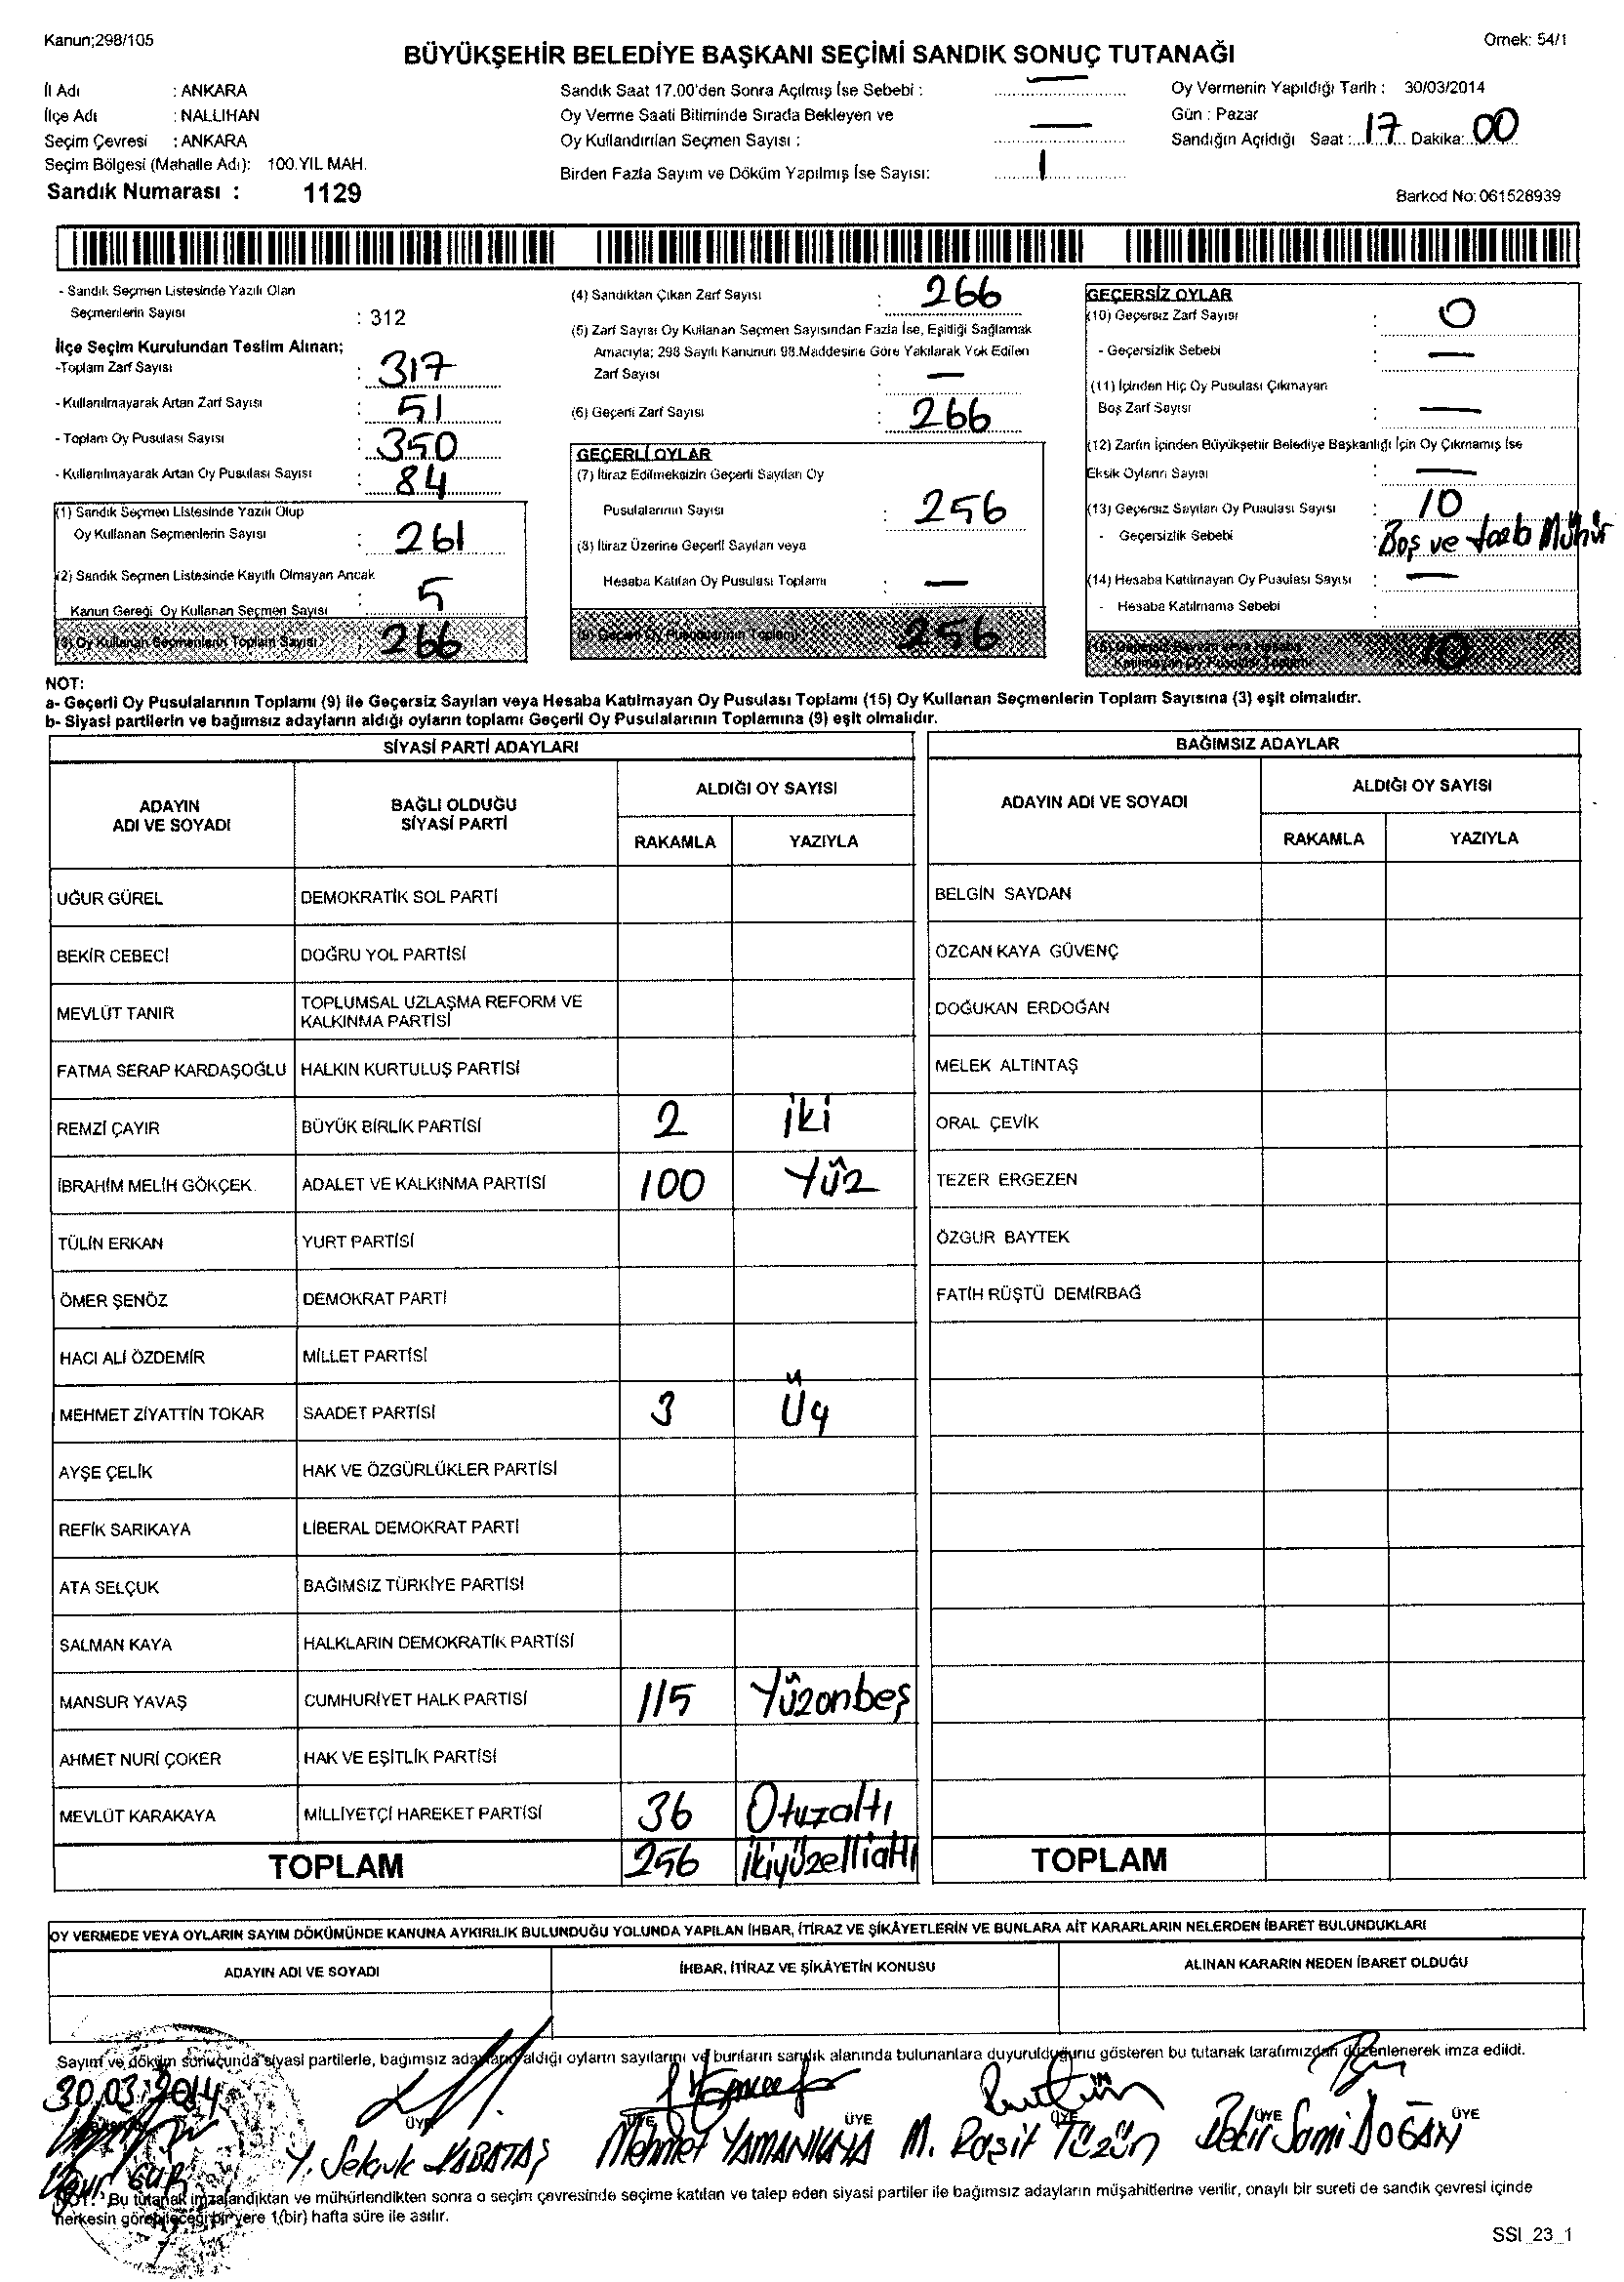 Kanun;298/105
Örnek: 54/1
BÜYÜKŞEHİR BELEDİYE BAŞKANI SEÇİMİ SANDIK SONUÇ TUTANAĞI
İl Adı : ANKARA
İlçe Adı : NALLIHAN
Seçim Çevresi : ANKARA
Seçim Bölgesi (Mahalle Adı): 100.YIL MAH.
Sandık Numarası : 1129
Sandık Saat 17.00'den Sonra Açılmış İse Sebebi : —
Oy Verme Saati Bitiminde Sırada Bekleyen ve
Oy Kullandırılan Seçmen Sayısı : —
Birden Fazla Sayım ve Döküm Yapılmış İse Sayısı: 1
Oy Vermenin Yapıldığı Tarih : 30/03/2014
Gün : Pazar
Sandığın Açıldığı Saat : 17 Dakika: 00
Barkod No:061528939
- Sandık Seçmen Listesinde Yazılı Olan
Seçmenlerin Sayısı : 312
İlçe Seçim Kurulundan Teslim Alınan;
-Toplam Zarf Sayısı : 317
- Kullanılmayarak Artan Zarf Sayısı : 51
- Toplam Oy Pusulası Sayısı : 350
- Kullanılmayarak Artan Oy Pusulası Sayısı : 84
(1) Sandık Seçmen Listesinde Yazılı Olup
Oy Kullanan Seçmenlerin Sayısı : 261
(2) Sandık Seçmen Listesinde Kayıtlı Olmayan Ancak
Kanun Gereği Oy Kullanan Seçmen Sayısı : 5
(3) Oy Kullanan Seçmenlerin Toplam Sayısı : 266
(4) Sandıktan Çıkan Zarf Sayısı : 266
(5) Zarf Sayısı Oy Kullanan Seçmen Sayısından Fazla İse, Eşitliği Sağlamak
Amacıyla; 298 Sayılı Kanunun 98.Maddesine Göre Yakılarak Yok Edilen
Zarf Sayısı : —
(6) Geçerli Zarf Sayısı : 266
GEÇERLİ OYLAR
(7) İtiraz Edilmeksizin Geçerli Sayılan Oy
Pusulalarının Sayısı : 256
(8) İtiraz Üzerine Geçerli Sayılan veya
Hesaba Katılan Oy Pusulası Toplamı : —
(9) Geçerli Oy Pusulalarının Toplamı : 256
GEÇERSİZ OYLAR
(10) Geçersiz Zarf Sayısı : 0
- Geçersizlik Sebebi : —
(11) İçinden Hiç Oy Pusulası Çıkmayan
Boş Zarf Sayısı : —
(12) Zarfın İçinden Büyükşehir Belediye Başkanlığı İçin Oy Çıkmamış İse
Eksik Oyların Sayısı : —
(13) Geçersiz Sayılan Oy Pusulası Sayısı : 10
- Geçersizlik Sebebi : Boş ve fazla Mühür
(14) Hesaba Katılmayan Oy Pusulası Sayısı : —
- Hesaba Katılmama Sebebi :
(15) Geçersiz Sayılan veya Hesaba
Katılmayan Oy Pusulası Toplamı 10
NOT:
a- Geçerli Oy Pusulalarının Toplamı (9) ile Geçersiz Sayılan veya Hesaba Katılmayan Oy Pusulası Toplamı (15) Oy Kullanan Seçmenlerin Toplam Sayısına (3) eşit olmalıdır.
b- Siyasi partilerin ve bağımsız adayların aldığı oyların toplamı Geçerli Oy Pusulalarının Toplamına (9) eşit olmalıdır.
SİYASİ PARTİ ADAYLARI
ADAYIN ADI VE SOYADI
BAĞLI OLDUĞU SİYASİ PARTİ
ALDIĞI OY SAYISI
RAKAMLA YAZIYLA
UĞUR GÜREL DEMOKRATİK SOL PARTİ
BEKİR CEBECİ DOĞRU YOL PARTİSİ
MEVLÜT TANIR TOPLUMSAL UZLAŞMA REFORM VE KALKINMA PARTİSİ
FATMA SERAP KARDAŞOĞLU HALKIN KURTULUŞ PARTİSİ
REMZİ ÇAYIR BÜYÜK BİRLİK PARTİSİ 2 iki
İBRAHİM MELİH GÖKÇEK ADALET VE KALKINMA PARTİSİ 100 Yüz
TÜLİN ERKAN YURT PARTİSİ
ÖMER ŞENÖZ DEMOKRAT PARTİ
HACI ALİ ÖZDEMİR MİLLET PARTİSİ
MEHMET ZİYATTİN TOKAR SAADET PARTİSİ 3 Üç
AYŞE ÇELİK HAK VE ÖZGÜRLÜKLER PARTİSİ
REFİK SARIKAYA LİBERAL DEMOKRAT PARTİ
ATA SELÇUK BAĞIMSIZ TÜRKİYE PARTİSİ
SALMAN KAYA HALKLARIN DEMOKRATİK PARTİSİ
MANSUR YAVAŞ CUMHURİYET HALK PARTİSİ 115 Yüzonbeş
AHMET NURİ ÇOKER HAK VE EŞİTLİK PARTİSİ
MEVLÜT KARAKAYA MİLLİYETÇİ HAREKET PARTİSİ 36 Otuzaltı
TOPLAM 256 ikiyüzellialtı
BAĞIMSIZ ADAYLAR
ADAYIN ADI VE SOYADI
ALDIĞI OY SAYISI
RAKAMLA YAZIYLA
BELGİN SAYDAN
ÖZCAN KAYA GÜVENÇ
DOĞUKAN ERDOĞAN
MELEK ALTINTAŞ
ORAL ÇEVİK
TEZER ERGEZEN
ÖZGUR BAYTEK
FATİH RÜŞTÜ DEMİRBAĞ
TOPLAM
OY VERMEDE VEYA OYLARIN SAYIM DÖKÜMÜNDE KANUNA AYKIRILIK BULUNDUĞU YOLUNDA YAPILAN İHBAR, İTİRAZ VE ŞİKÂYETLERİN VE BUNLARA AİT KARARLARIN NELERDEN İBARET BULUNDUKLARI
ADAYIN ADI VE SOYADI
İHBAR, İTİRAZ VE ŞİKÂYETİN KONUSU
ALINAN KARARIN NEDEN İBARET OLDUĞU
Sayım ve döküm sonucunda siyasi partilerle, bağımsız adayların aldığı oyların sayılarını ve bunların sandık alanında bulunanlara duyurulduğunu gösteren bu tutanak tarafımızdan düzenlenerek imza edildi.
30.03.2014
ÜYE ÜYE ÜYE ÜYE ÜYE ÜYE
Uğur GÜR Y. Selçuk KABATAŞ Mehmet YAMANKAYA M. Raşit TÜZÜN Bekir Sami DOĞAN
NOT: Bu tutanak imzalandıktan ve mühürlendikten sonra o seçim çevresinde seçime katılan ve talep eden siyasi partiler ile bağımsız adayların müşahitlerine verilir, onaylı bir sureti de sandık çevresi içinde
herkesin görebileceği bir yere 1(bir) hafta süre ile asılır.
SSI_23_1